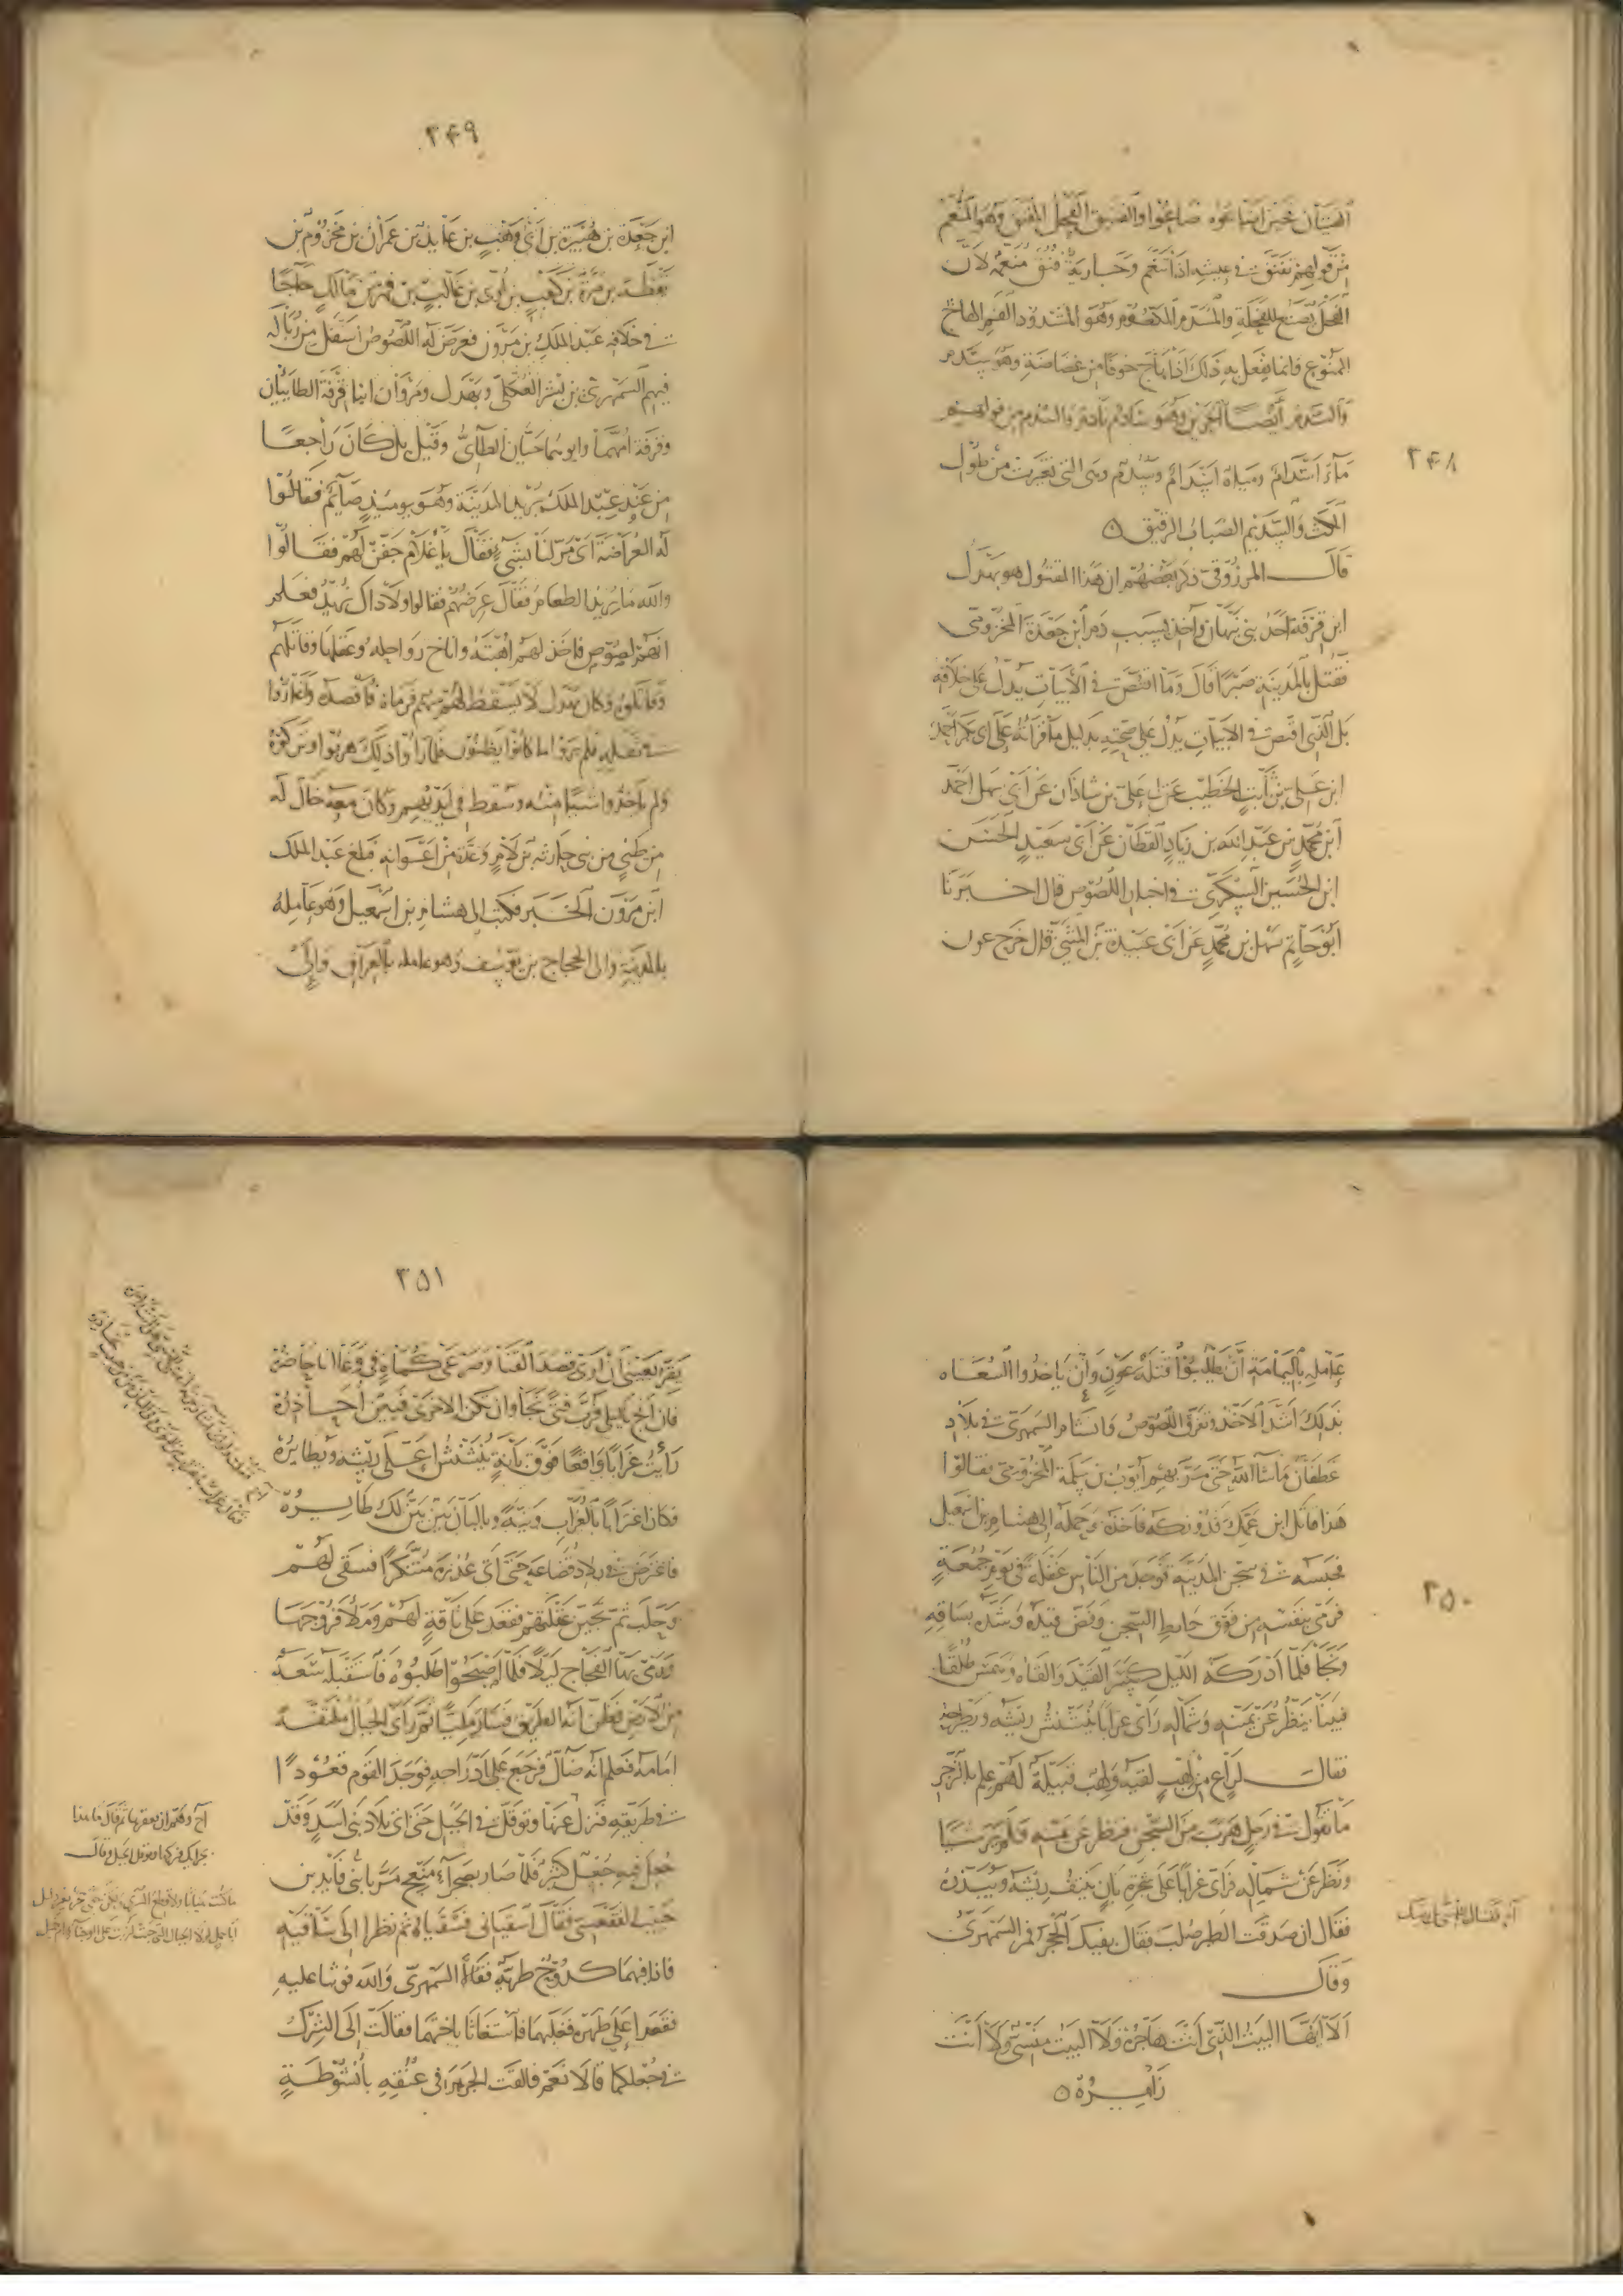 ٣٤٨
الفتيان حين
من قولهم تفنق في عيشه اذا تنعم وجارية فنق منعمة لان
الفحل يصنع للفحلة والمسدم المكعوم وهو المشدود الفم الهائج
الممنوع فانما يفعل به ذلك اذا هاج خوفا من عضاضه وهو سدم
والسدم ايضا الحزين وهو سادم نادم والسدم من قولهم
ماء اسدام ومياه اسدام وسدم وهي التي تغيرت من طول
المكث والسديم الضباب الرقيق ٥
قال المرزوقي ذكر بعضهم ان هذا المقتول هو بهدل
ابن قرفة احد بني نبهان واخذ بسبب دم ابن جعدة المخزومي
فقتل بالمدينة صبرا قال وما اقتص في الابيات يدل على خلافه
بل الذي اقتص في الابيات يدل على صحته بدليل ما قرأته على ابي بكر احمد
ابن علي بن ثابت الخطيب عن ابي علي بن شاذان عن ابي سهل احمد
ابن محمد بن عبد الله بن زياد القطان عن ابي سعيد الحسن
ابن الحسين السكري في اخبار اللصوص قال اخبرنا
ابو حاتم سهل بن محمد عن ابي عبيدة بن المثنى قال خرج عون
٣٤٩
ابن جعدة بن هبيرة بن ابي وهب بن عايذ بن عمران بن مخزوم بن
يقظة بن مرة بن كعب بن لؤي بن غالب بن فهر بن مالك حاجا
في خلافة عبد الملك بن مروان فعرض له اللصوص اسفل من زبالة
فيهم السمهري بن بشر العكلي وبهدل ومروان ابنا قرفة الطاييان
وقرفة امهما وابوهما حيان الطائي وقيل بل كان راجعا
من عند عبد الملك يريد المدينة وهو يوميذ صايم فقالوا
له العراضة اي مر لنا بشيء فقال يا غلام جفن لهم فقالوا
والله ما نريد الطعام فقال عرضهم فقالوا ولا ذاك نريد فعلم
انهم لصوص فاخذ لهم اهبته واناخ رواحله وعقلها وقاتلهم
وقاتلوه وكان بهدل لا يسقط له سهم فرماه فاقصده واغاروا
في ثقله فلم يروا ما كانوا يظنون فلما رأوا ذلك هربوا وتركوه
ولم ياخذوا شيا منه وسقط في ايديهم وكان معه خال له
من طيئ من بني حارثة بن لام وعدة من اعوانه فبلغ عبد الملك
ابن مروان الخبر فكتب الى هشام بن اسمعيل وهو عامله
بالمدينة والى الحجاج بن يوسف وهو عامله بالعراق والى
٣٥٠
عامله باليمامة ان يطلبوا قتلة عون وان ياخذوا السعاه
بذلك اشد الاخذ وتفرق اللصوص وانشام السمهري في بلاد
غطفان ما شا الله حتى مر بهم ايوب بن سلمة المخزومي فقالوا
هذا قاتل ابن عمك فدونكه فاخذه وحمله الى هشام بن اسمعيل
فحبسه في سجن المدينة فوجد من الناس غفلة في يوم جمعة
فرمى بنفسه من فوق حايط السجن وفض قيده وشده بساقه
ونجا فلما ادركه الليل كسر القيد والقاه
فبينا ينظر عن يمينه وشماله رأى غرابا ينتنش ريشه ويطرحه
فقال لراع من لهب لقيه ولهب قبيلة لهم علم بالزجر
ما تقول في رجل هرب من السجن فنظر عن يمينه فلم ير شيا
ونظر عن شماله فرأى غرابا على شجرة بان ينتف ريشه ويبذه
فقال ان صدقت الطير صلب فقال بفيك الحجر فمر السمهري
وقال
الا ايها البيت الذي انت هاجره ولا البيت منسي ولا انت
زايره ٥
٣٥١
يقر بعيني ان ارى قصد القنا وصرعى كماة في وغا انا حاضره
فان انج يا ليلى فرب فتى نجا وان تكن الاخرى فبين احاذره
رأيت غرابا واقعا فوق بانة ينشنش اعلى ريشه ويطايره
فكان اغترابا بالغراب ونية وبالبان بين بين لك طايره
فاعترض في بلاد قضاعة حتى اتى عذرة متنكرا فسقى لهم
وحلب ثم تحين غفلتهم فقعد على ناقة لهم
الفجاج ليلا فلما اصبحوا طلبوه فاستقبله سعة
من الارض فظن انه الطريق فسار مليا ثم رأى الجبال ملتفة
امامه فعلم انه ضال فرجع على ادراجه فوجد القوم قعودا
في طريقه فنزل عنها وتوقل في الجبل حتى اتى بلاد بني اسد وقد
جعل فيه جعل كثير فلما صار بصحراء منعج مر بابني فايد بن
حبيب الفقعسي فقال اسقياني فسقياه ثم نظرا الى ساقيه
فاذا فيهما كدوح فقالا السمهري والله فوثبا عليه
فقعدا على ظهره فغلبهما فاستغاثا باختهما فقالت الي الشرك
في جعلكما قالا نعم فالقت الجرير في عنقه بانشوطة